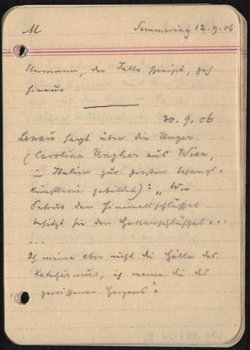 M Semmering 12.9.06
Hermann, der
hinaus
30.9.06
Lenau sagt über die Unger
(Carolina Ungher aus Wien,
in Italien zur großen Gesangs-
künstlerin gebildet): "Wie
Petrus den Himmelschlüssel
besitzt sie den Höllenschlüssel...
...
Ich meine aber nicht die Hölle des
Katechismus, ich meine die des
zerrissenen Herzens".